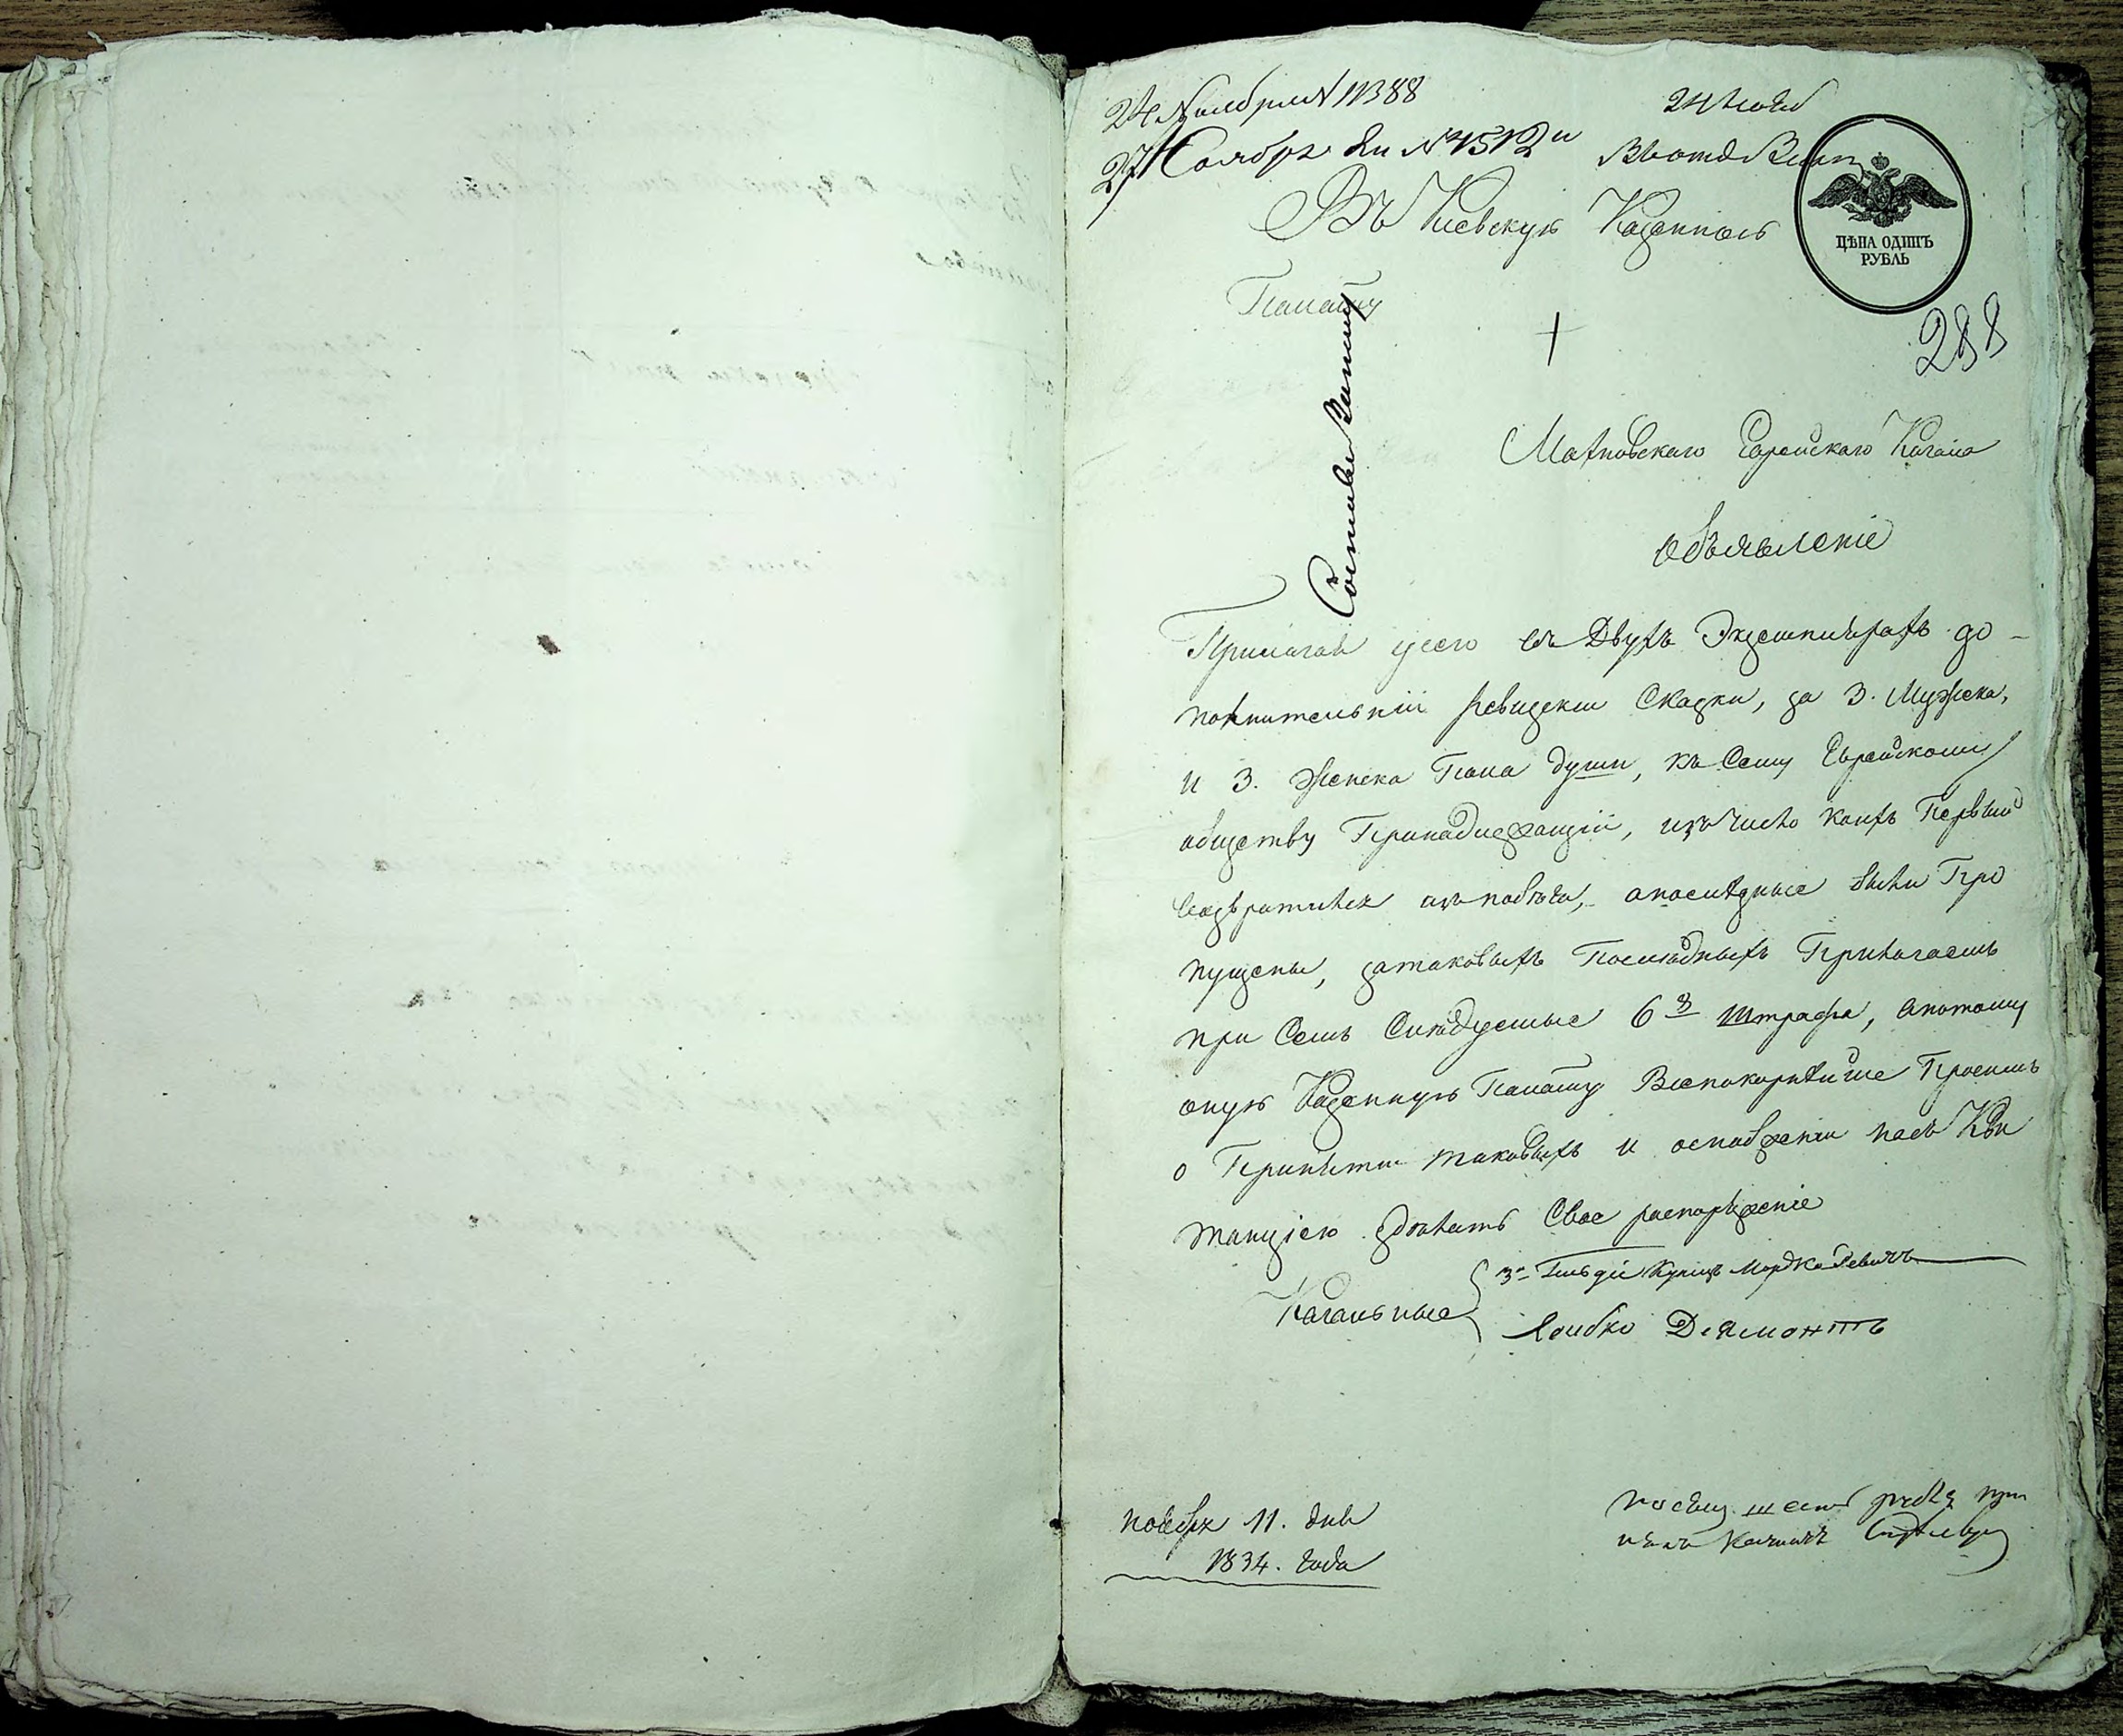 24 Ноября № 11388
27 Ноября № 4512
Въ Кіевскую Казенную
ЦѢНА ОДИНЪ
РУБЛЬ
Палату
288
Махновскаго Еврейскаго Кагала
объявленіе
Прилагая у сего въ Двухъ Экземплярахъ до-
полнительніи Ревизскіи Сказки, за 3. Мужска,
и 3. Женска Пола души, къ Сему Еврейскому
обществу Принадлежащіи, изъ числа коихъ Первый
возвратился изъ побѣга, а послѣдные были Про
пущены, затаковыхъ Послѣдныхъ Прилагаемъ
при Семъ Слѣдуемые 6 штрафа, а потому
оную Казенную Палату Всепокорнѣйше Просимъ
о Принятіи таковыхъ и оснабженіи насъ Кви
танціею здѣлать Свое распоряженіе
Кагальные
3й Гильдіи Купецъ Мордко
Лейбко Деямонтъ
ноября 11. дня
1834. года